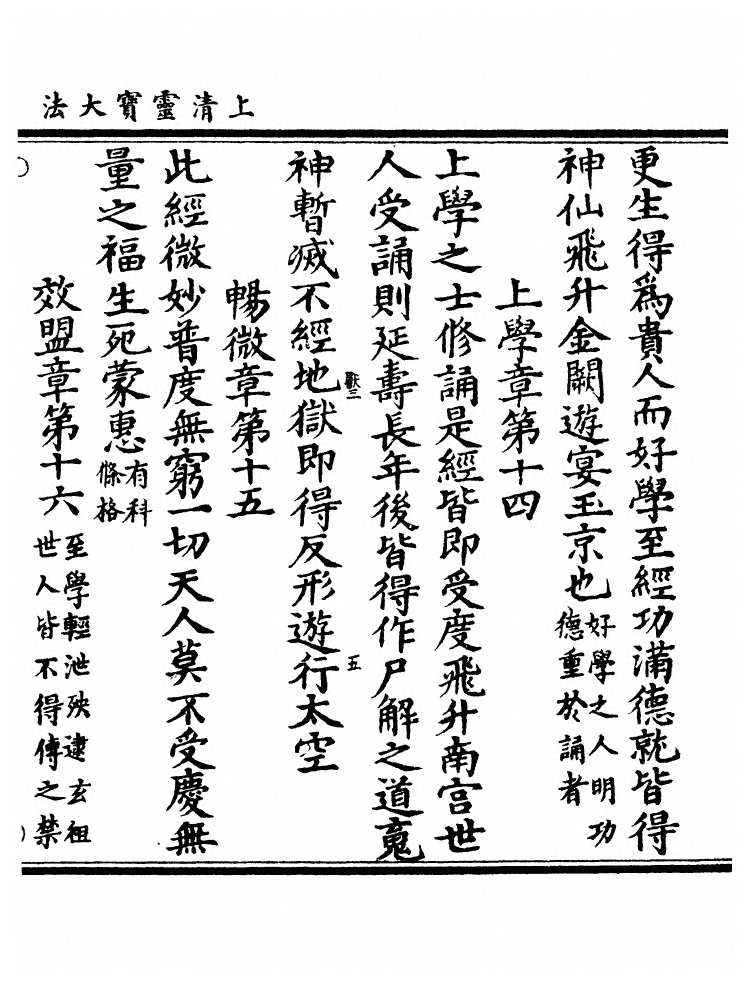 上清靈寶大法
更生得爲貴人而好學至經功滿德就皆得
神仙飛升金闕遊宴玉京也好學之人明功德重於誦者
上學章第十四
上學之士修誦是經皆即受度飛升南宮世
人受誦則延壽長年後皆得作尸解之道䰟
神暫滅不經地獄即得反形遊行太空
獸三
五
暢微章第十五
此經微妙普度無窮一切天人莫不受慶無
量之福生死蒙惠有科條格
效盟章第十六至學輕泄殃逮玄祖世人皆不得傳之禁